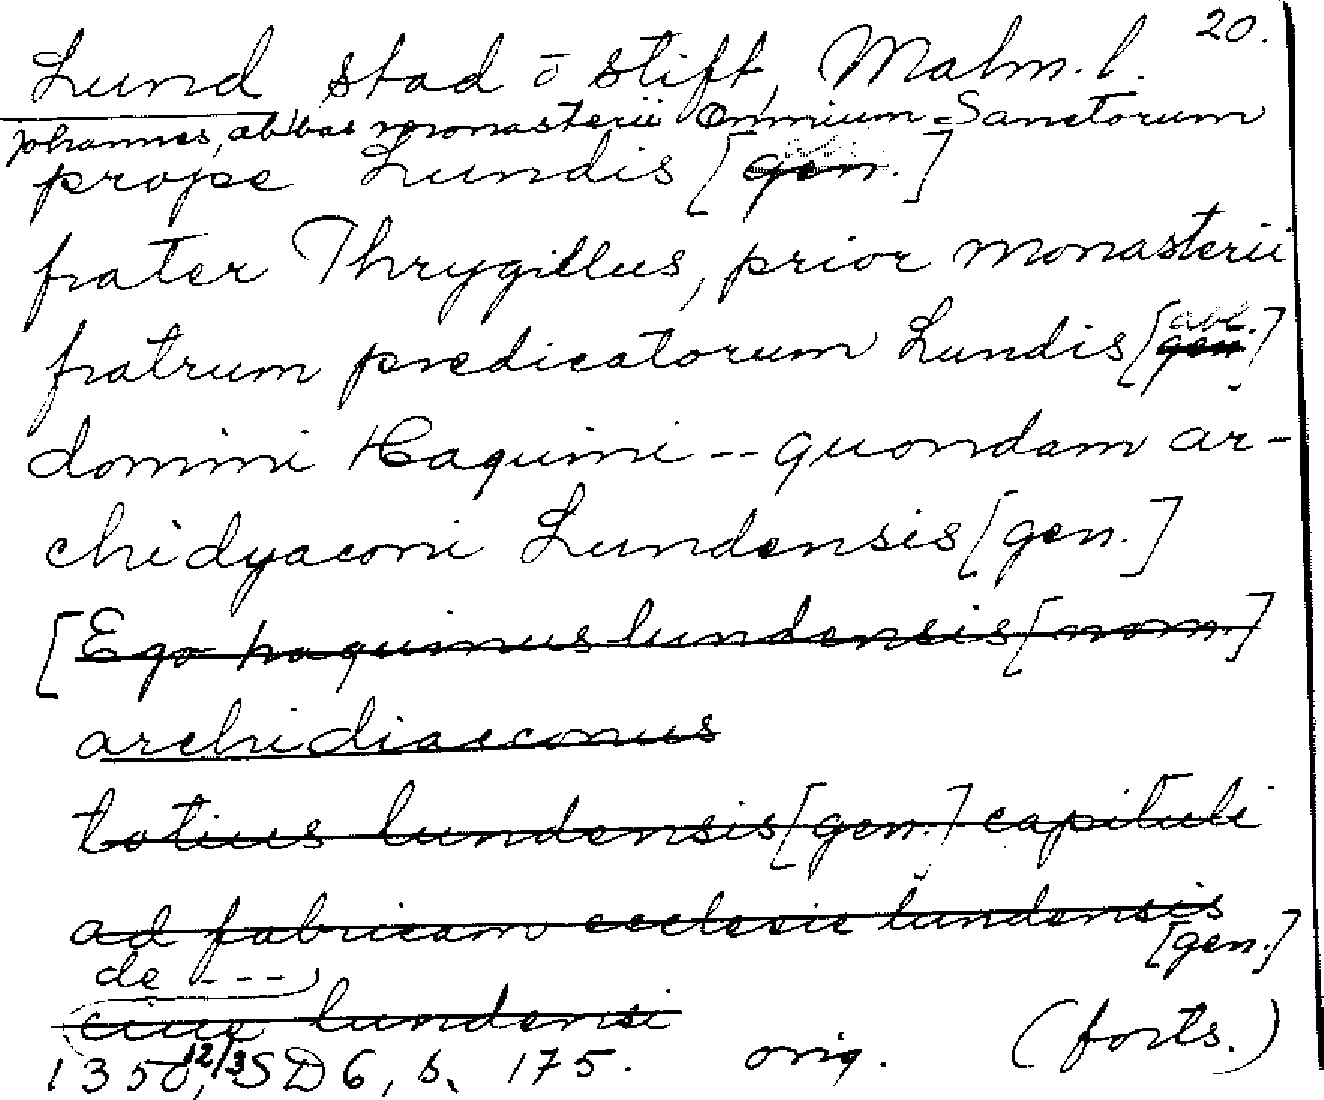 20.
Lund stad o stift, Malm. l.
Johannes, abbas monasterii Omnium Sanctorum
prope Lundis [gen.]
frater Thrygillus, prior monasterii
fratrum predicatorum Lundis [abl. gen]
domini Haquini -- quondam ar-
chidyaconi Lundensis [gen.]
[Ego haquinus lundensis [nom.]
archidiaeconus
totius lundensis [gen.] capituli
ad fabricam ecclesie lundensis
[gen.]
de ---
ciue lundensi
1350, 12/3 SD 6, s. 175. orig. (forts.)